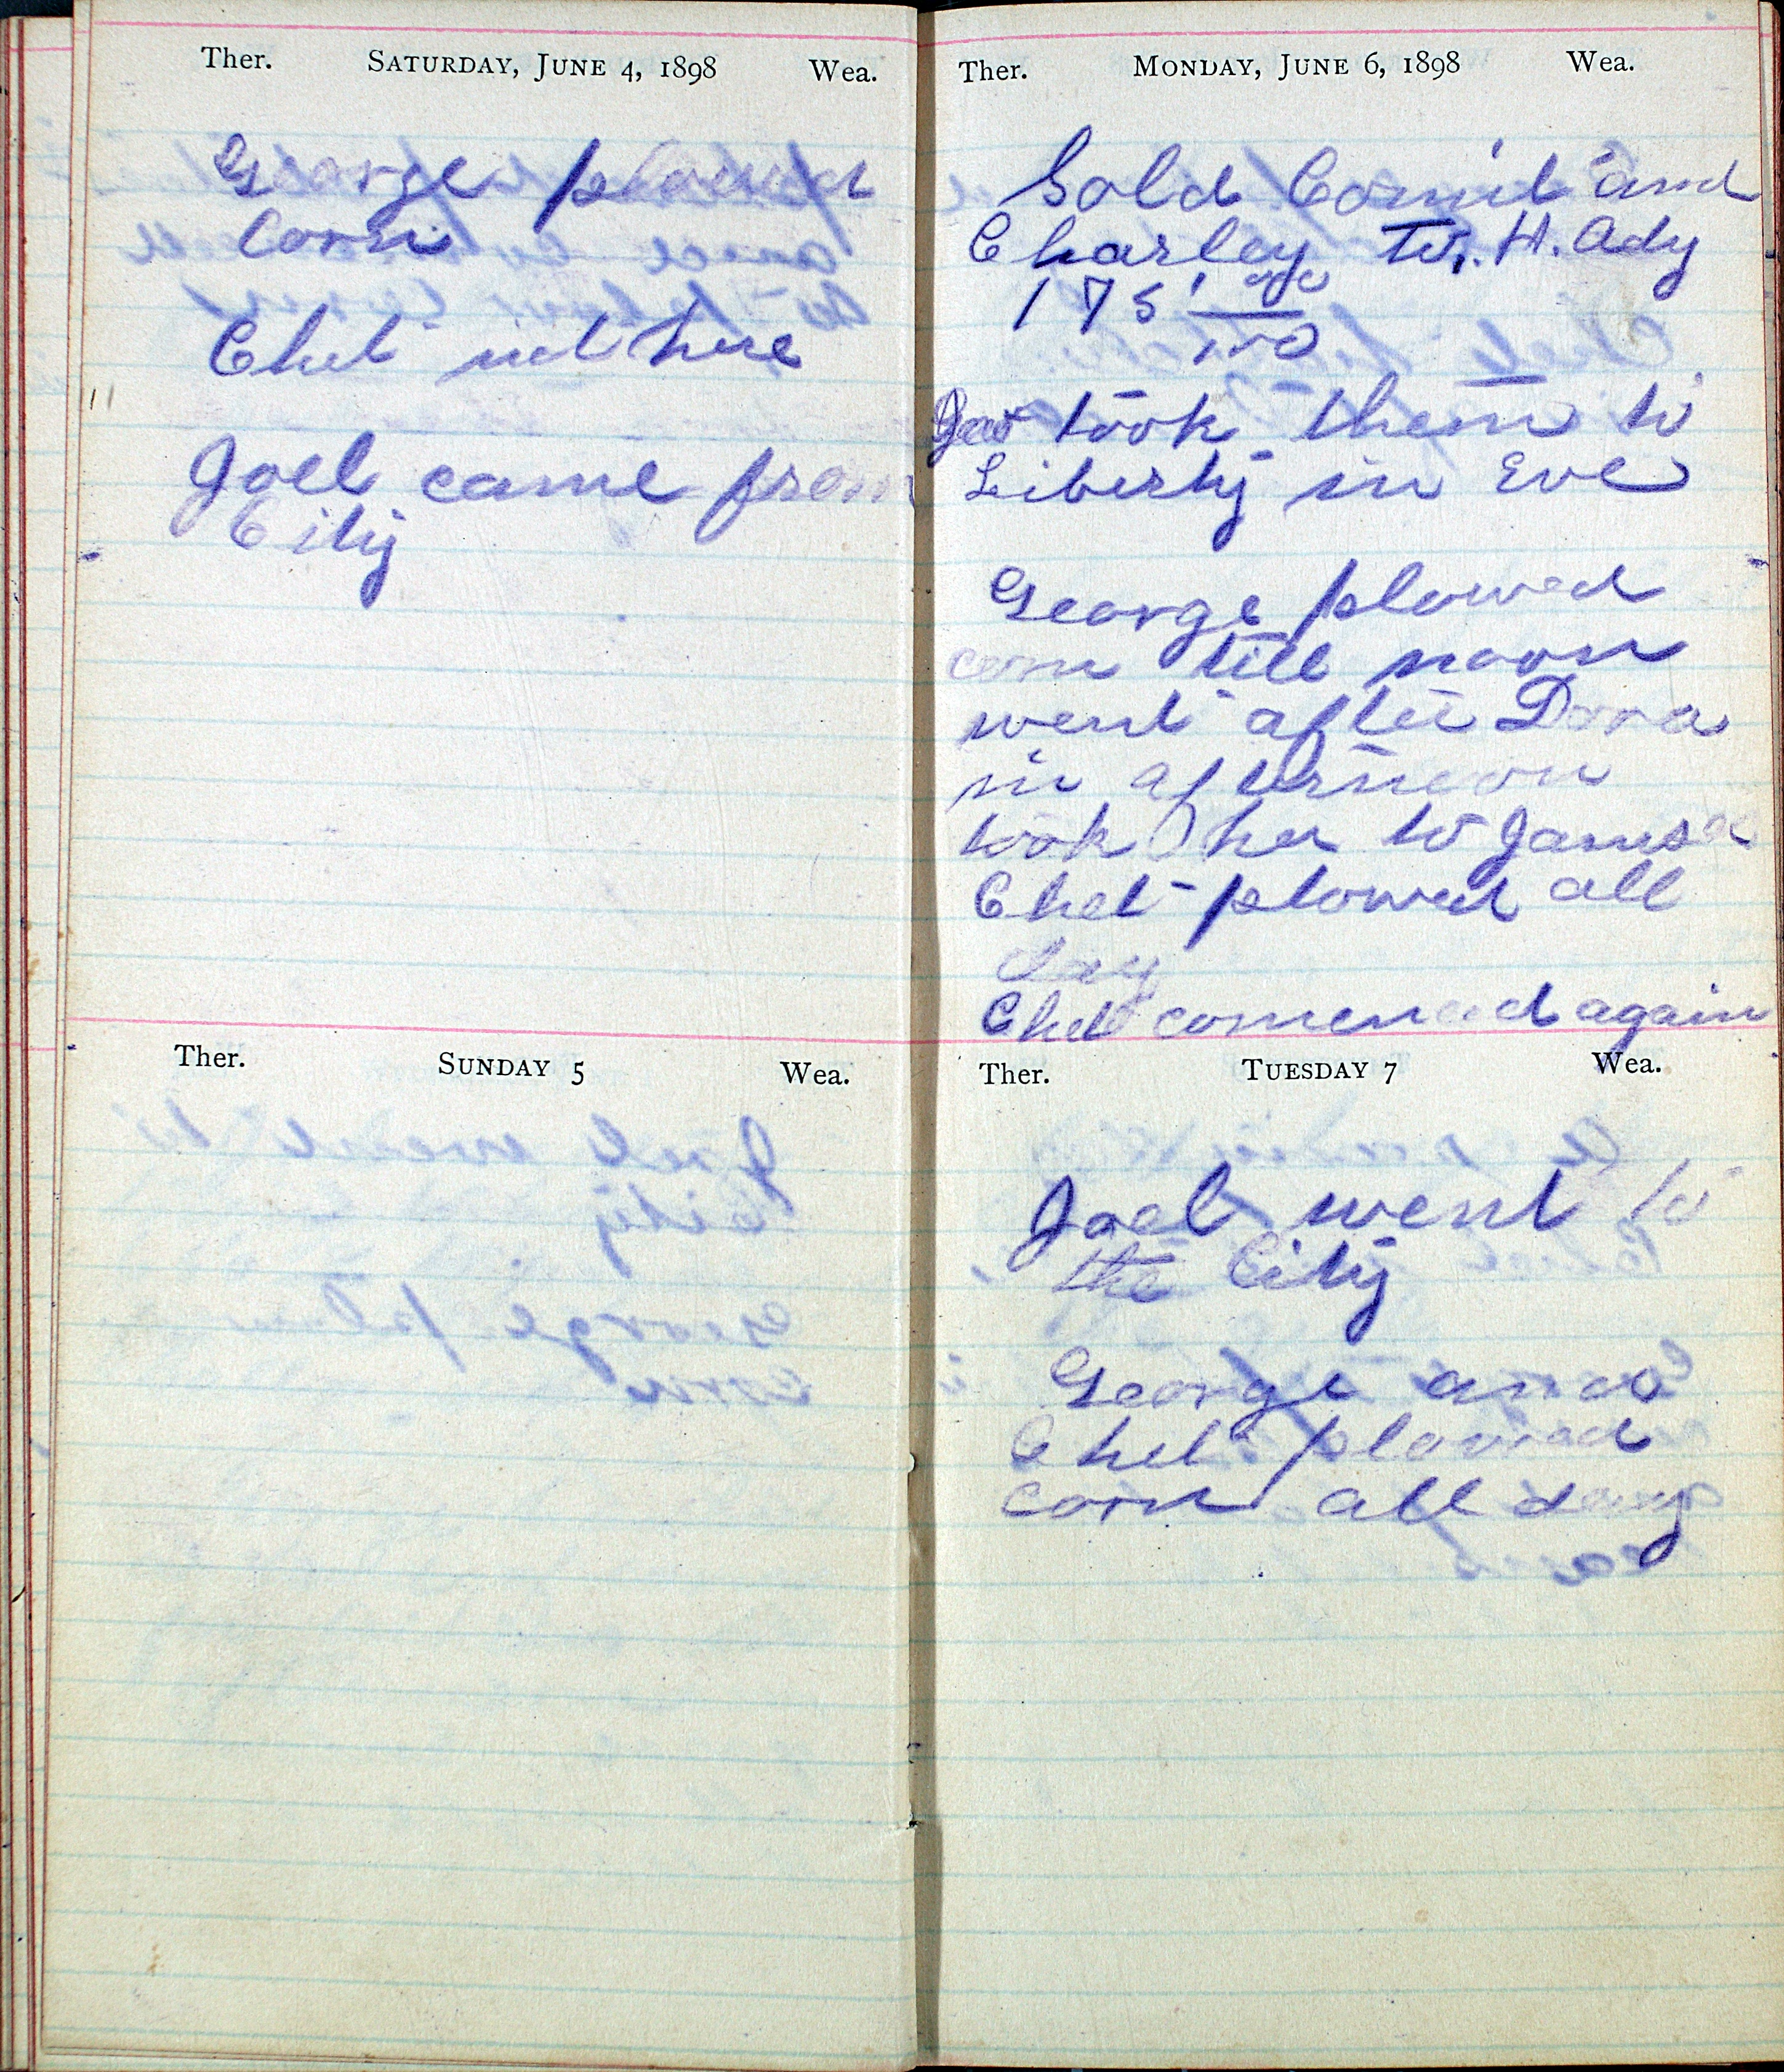 Ther. SATURDAY, JUNE 4, 1898 Wea.
George plowed
Corn
Chet not here
Joel came from
City
Ther. SUNDAY 5 Wea.
Ther. MONDAY, JUNE 6, 1898 Wea.
Sold and
Charley H. Ady
175 00/100
Geo took them to
Liberty in Eve
George plowed
corn till noon
went after Dora
in afternoon
took her to
Chet plowed all
day
Chet comenced again
Ther. TUESDAY 7 Wea.
Joel went to
the City
George and
Chet plowed
corn all day